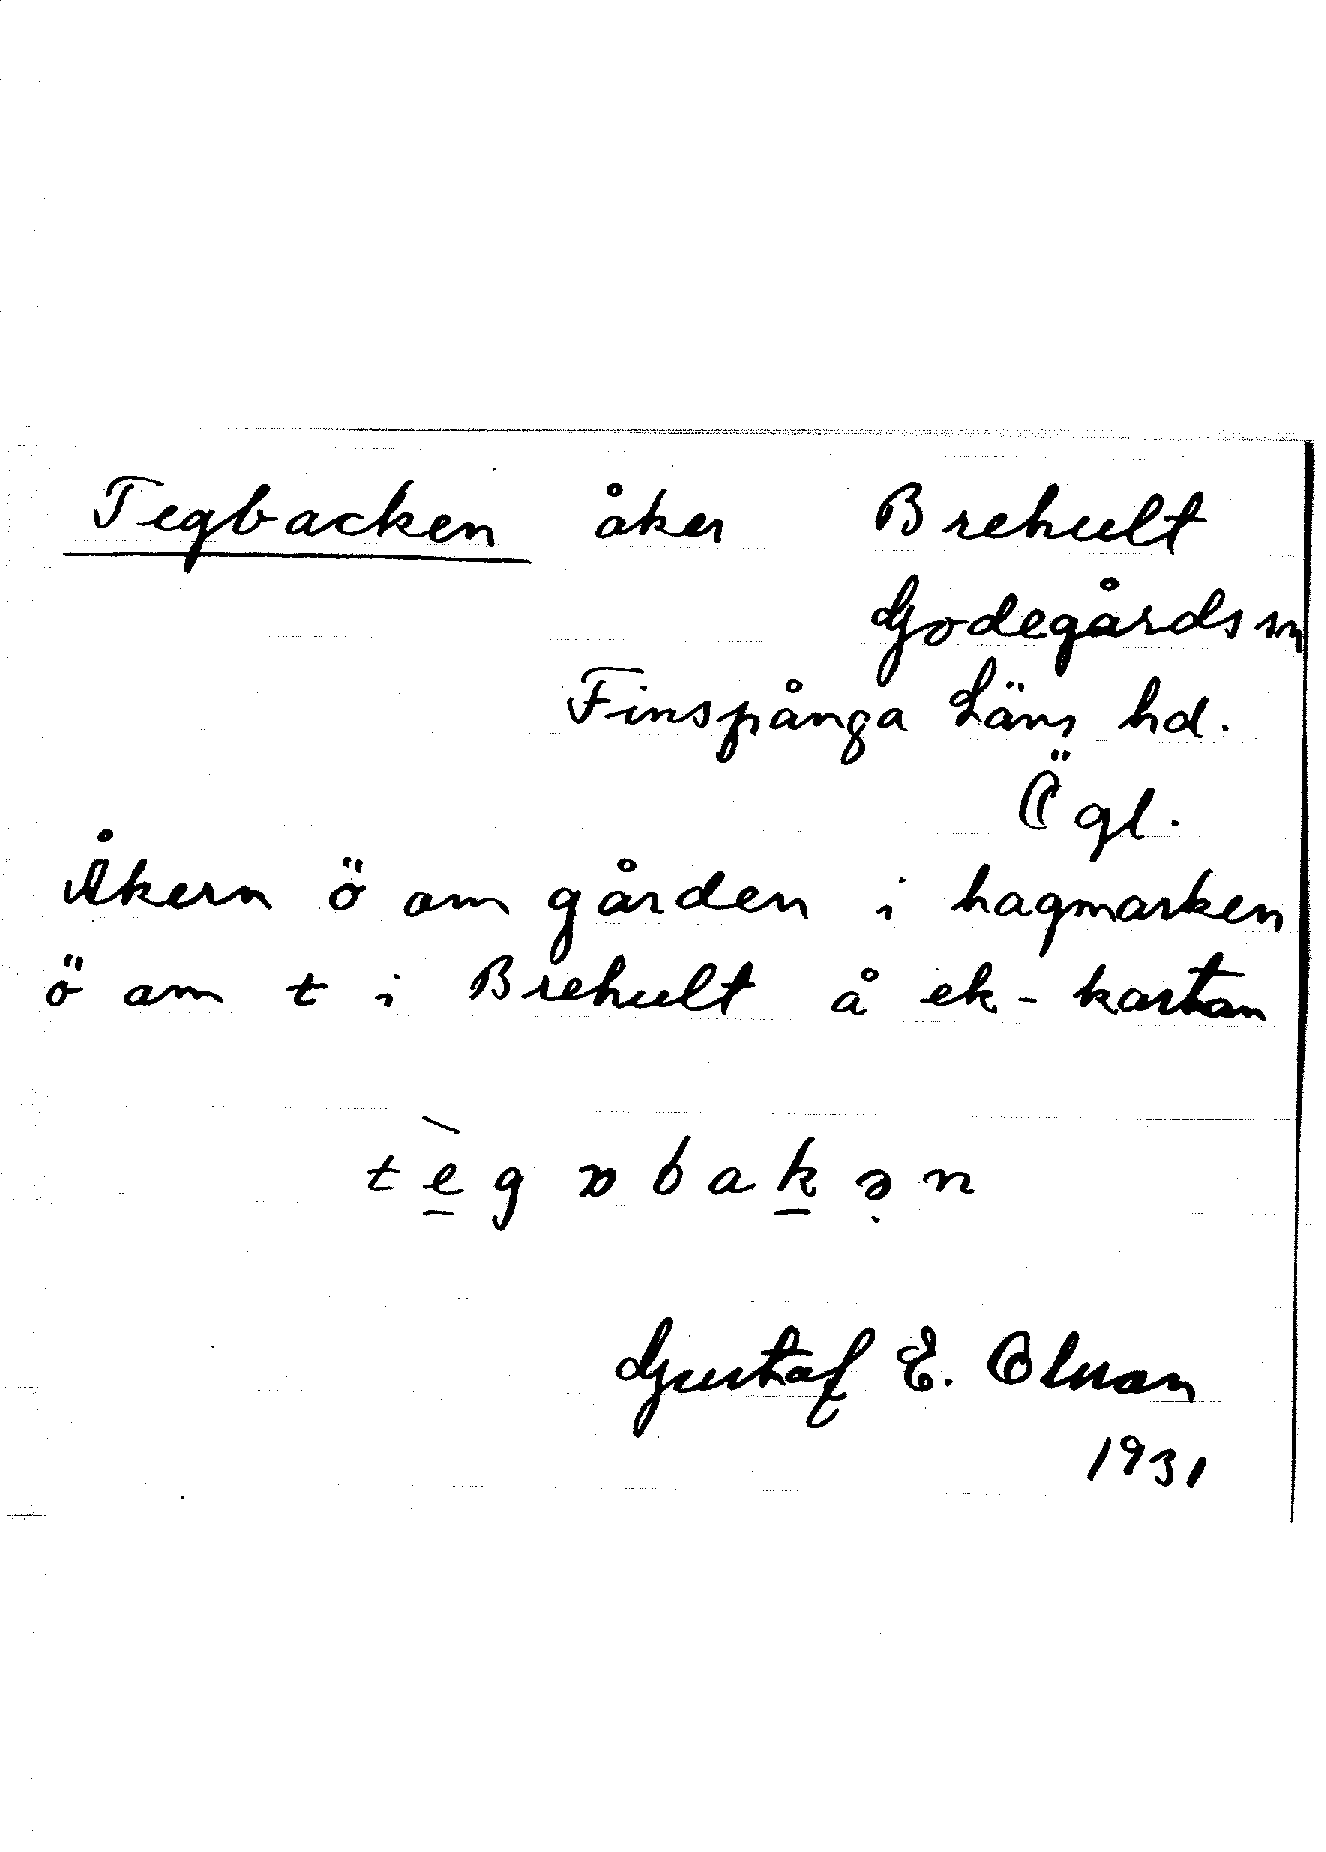 Tegbacken åker Brehult
Godegårds sn
Finspånga Läns hd.
Ögl.
Åkern ö om gården i hagmarken
ö om t i Brehult å ek-kartan
tègɒbakə̣n
Gustaf E. Olsson
1931